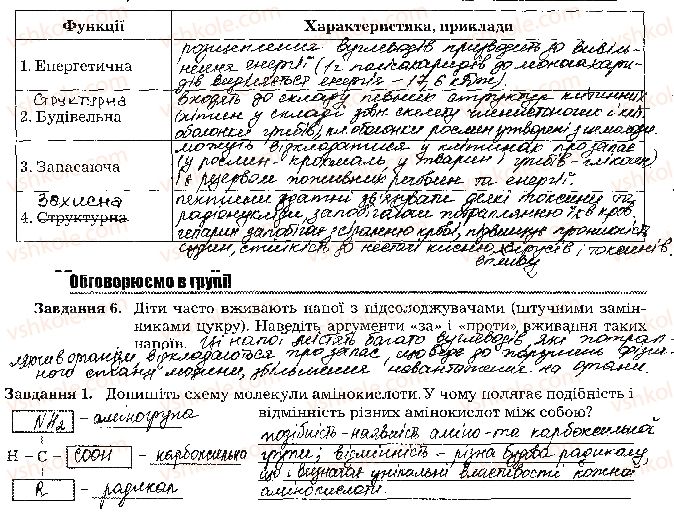 Функції Характеристика, приклади
1. Енергетична
розщеплення вуглеводів призводить до вивіль-
нення енергії (1 г полісахаридів до моносахари-
дів виділяється енергія - 17,6 кДж)
Структурна
2. Будівельна
входять до складу певних структур клітинних
(хітин у складі зовн. скелету членистоногих і кліт.
оболонки грибів), кл. оболонки рослин утворені з целюлози
3. Запасаюча
можуть відкладатися у клітинах про запас
(у рослин - крохмаль, у тварин і грибів - глікоген)
і є резервом поживних речовин та енергії.
Захисна
4. Структурна
пектини здатні зв'язувати деякі токсини та
радіонукліди, запобігаючи потраплянню їх в кров
гепарин запобігає зсіданню крові, підвищує проникність
судин, стійкість до нестачі кисню, вірусів і токсинів.
впливу
Обговорюємо в групі
Завдання 6. Діти часто вживають напої з підсолоджувачами (штучними замін-
никами цукру). Наведіть аргументи «за» і «проти» вживання таких
напоїв. Ці напої містять багато вуглеводів, які потрап-
ляючи в організм, відкладаються про запас, що веде до порушень фізич-
ного стану людини, збільшення навантаження на органи.
Завдання 1. Допишіть схему молекули амінокислоти. У чому полягає подібність і
відмінність різних амінокислот між собою?
NH2 - аміногрупа
H - C - COOH - карбоксильна
R - радикал
подібність - наявність аміно - та карбоксильної
групи; відмінність - різна будова радикалу,
що і визначає унікальні властивості кожної
амінокислоти.
vshkole.com